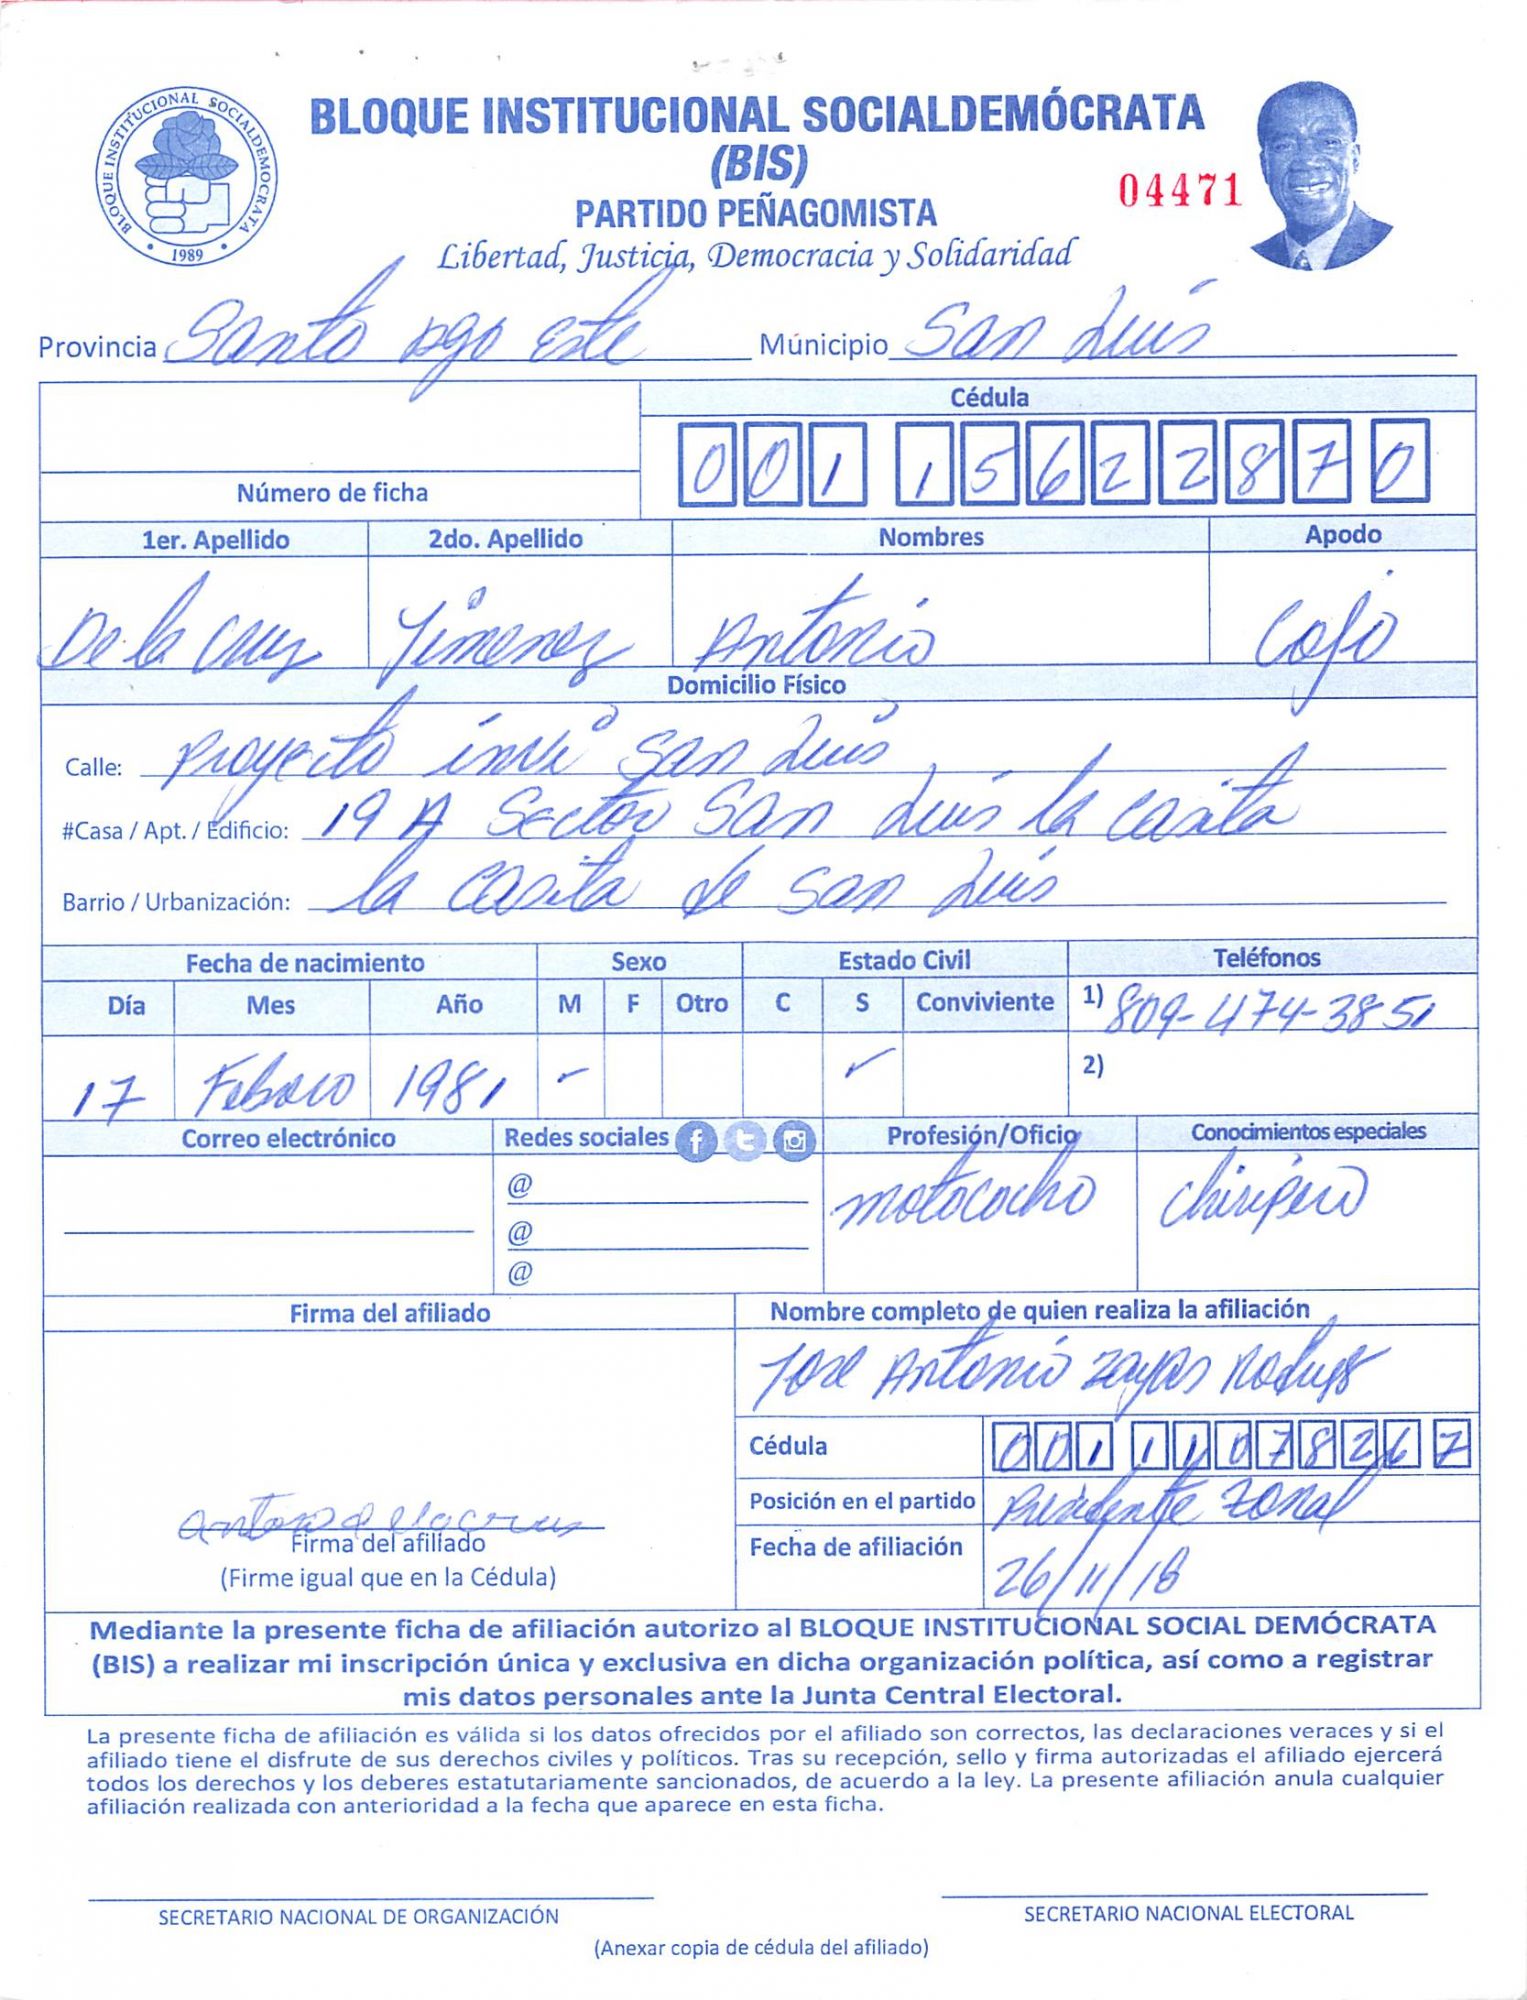 BLOQUE INSTITUCIONAL SOCIALDEMOCRATA
1989
BLOQUE INSTITUCIONAL SOCIALDEMÓCRATA
(BIS)
04471
PARTIDO PEÑAGOMISTA
Libertad, Justicia, Democracia y Solidaridad
Provincia Santo Dgo Este Múnicipio San Luis
Cédula
001 1562287 0
Número de ficha
1er. Apellido 2do. Apellido Nombres Apodo
De la Cruz Jimenez Antonio Cojo
Domicilio Físico
Calle: Proyecto invi San Luis
#Casa / Apt. / Edificio: 19 A Sector San Luis la casita
Barrio / Urbanización: la casita de San Luis
Fecha de nacimiento Sexo Estado Civil Teléfonos
Día Mes Año M F Otro C S Conviviente 1) 809-474-3851
17 Febrero 1981 - ✓ 2)
Correo electrónico Redes sociales Profesión/Oficio Conocimientos especiales
@ motococho chiripero
@
@
Firma del afiliado Nombre completo de quien realiza la afiliación
Jose Antonio Zayas
Cédula 001 1107826 7
Posición en el partido Presidente Zonal
Firma del afiliado
(Firme igual que en la Cédula)
Fecha de afiliación 26/11/18
Mediante la presente ficha de afiliación autorizo al BLOQUE INSTITUCIONAL SOCIAL DEMÓCRATA
(BIS) a realizar mi inscripción única y exclusiva en dicha organización política, así como a registrar
mis datos personales ante la Junta Central Electoral.
La presente ficha de afiliación es válida si los datos ofrecidos por el afiliado son correctos, las declaraciones veraces y si el
afiliado tiene el disfrute de sus derechos civiles y políticos. Tras su recepción, sello y firma autorizadas el afiliado ejercerá
todos los derechos y los deberes estatutariamente sancionados, de acuerdo a la ley. La presente afiliación anula cualquier
afiliación realizada con anterioridad a la fecha que aparece en esta ficha.
SECRETARIO NACIONAL DE ORGANIZACIÓN SECRETARIO NACIONAL ELECTORAL
(Anexar copia de cédula del afiliado)